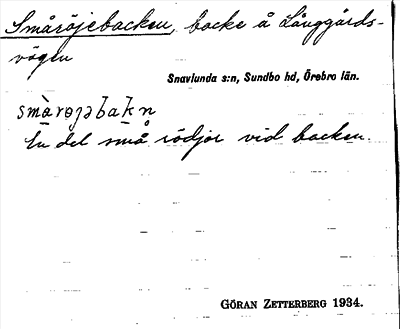 Småröjebacken, backe å Långgårds-
vägen
Snavlunda s:n, Sundbo hd, Örebro län.
En del små rödjor vid backen.
GÖRAN ZETTERBERG 1934.